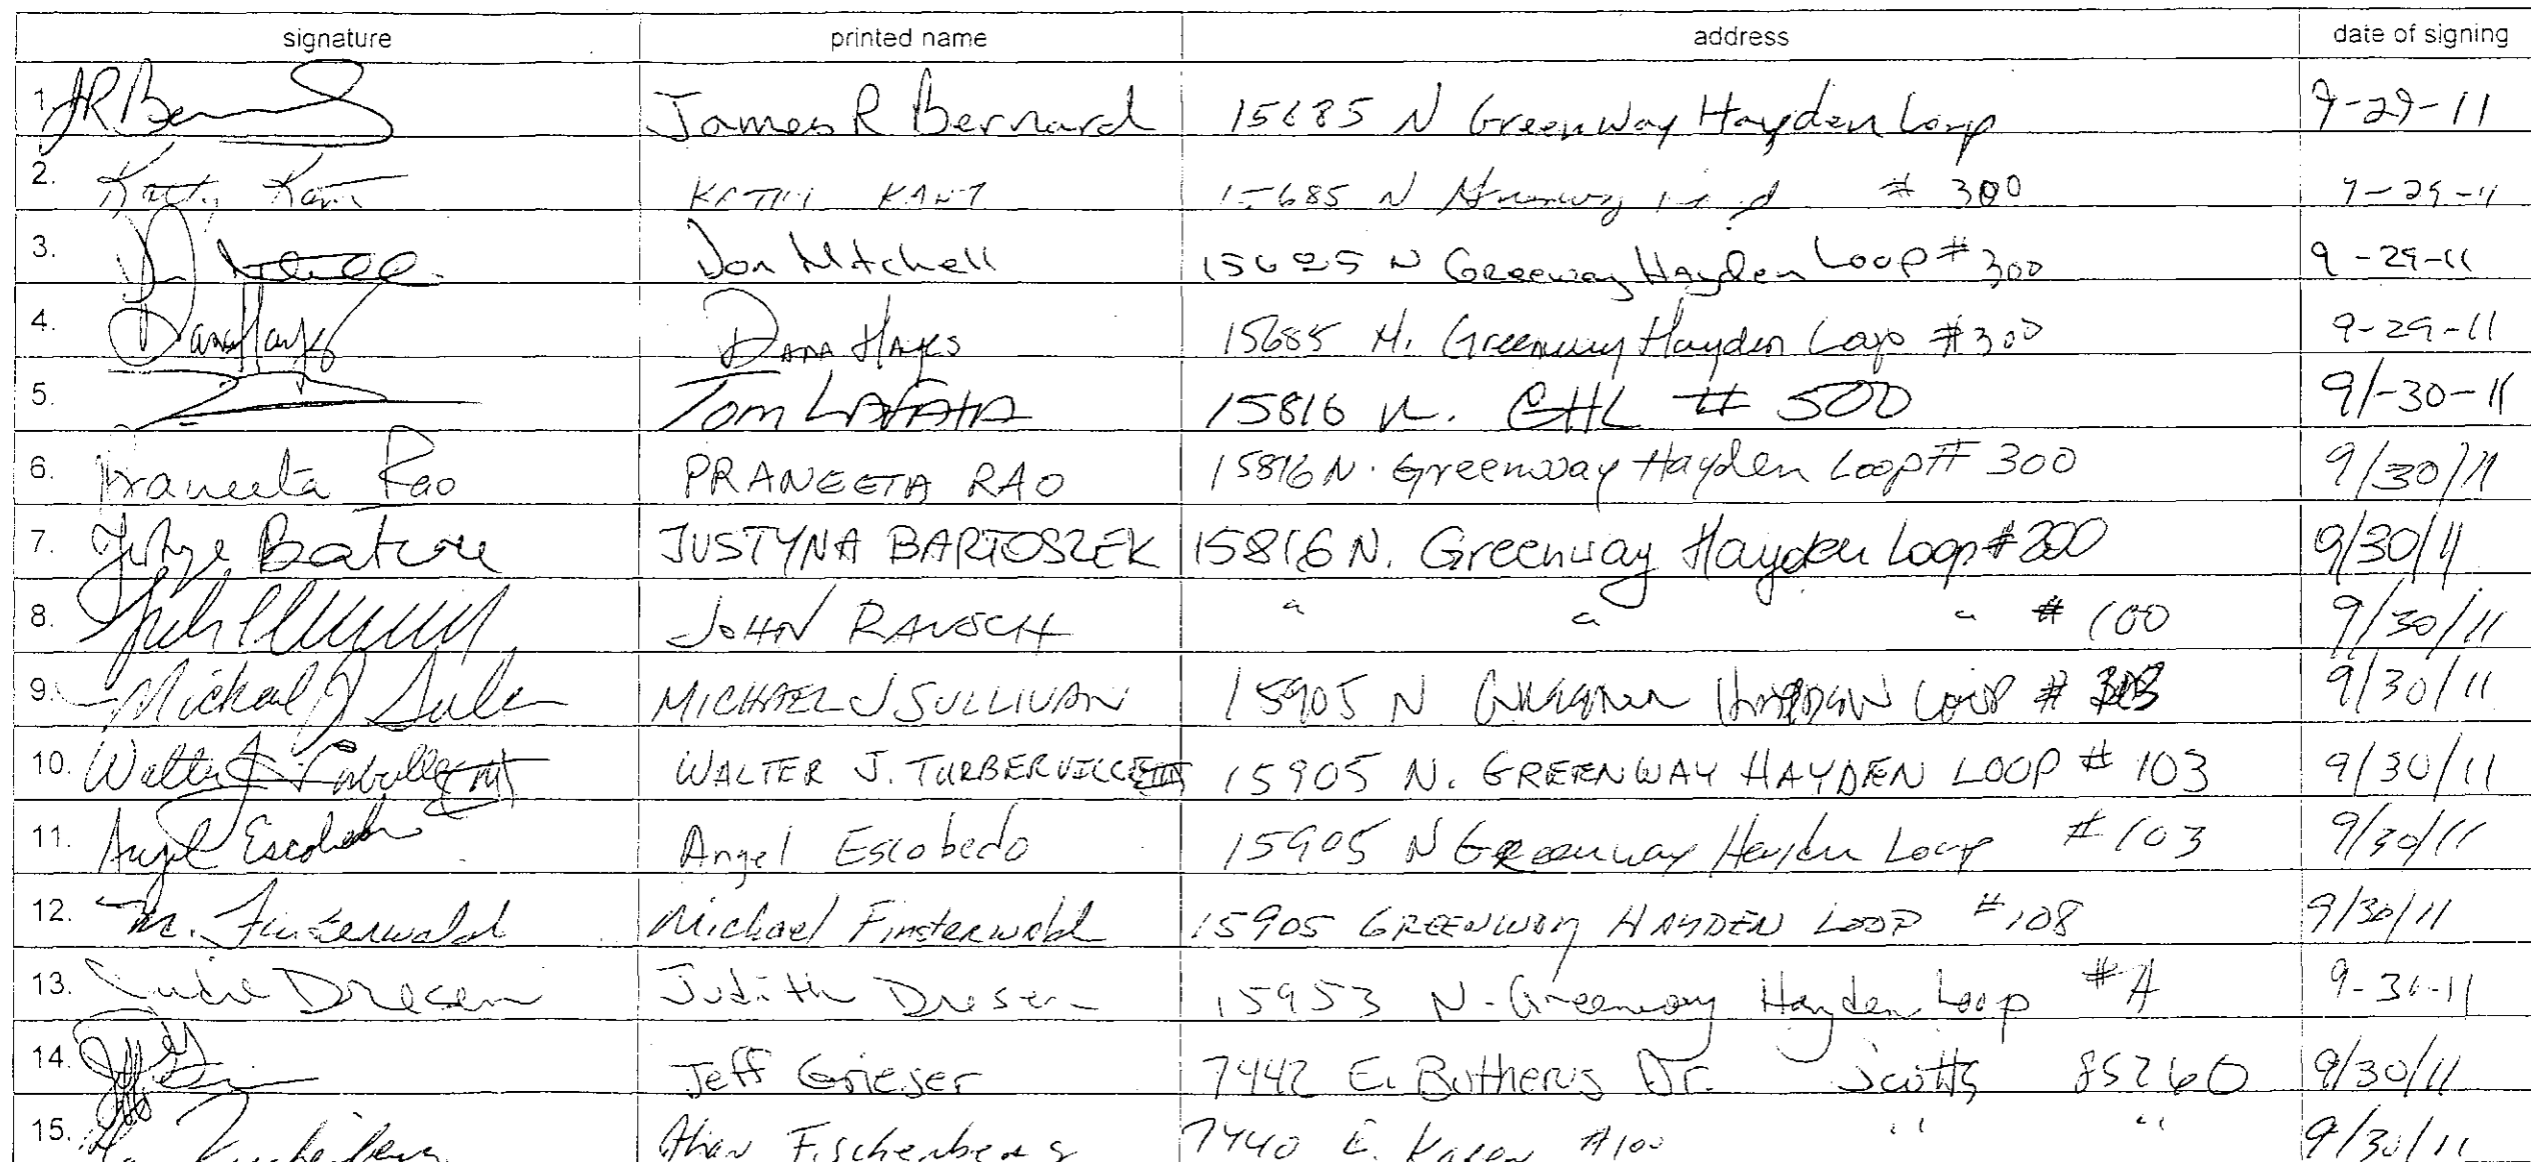 signature printed name address date of signing
1. JR Bernard James R Bernard 15685 N Greenway Hayden Loop 9-29-11
2. Kathy Kant KATHY KANT 15685 N Greenway # 300 9-29-11
3. Don Mitchell Don Mitchell 15685 N Greeway Hayden Loop # 300 9-29-11
4. Dana Hayes Dana Hayes 15685 N. Greenway Hayden Loop #300 9-29-11
5. Tom LAFATA 15816 N. GHL # 500 9/-30-11
6. Praneeta Rao PRANEETA RAO 15816 N. Greenway Hayden Loop # 300 9/30/11
7. JUSTYNA BARTOSZEK 15816 N. Greenway Hayden Loop #200 9/30/11
8. JOHN RAUSCH " " " # 100 9/30/11
9. Michael J MICHAEL J SULLIVAN 15905 N HAYDEN LOOP # 9/30/11
10. Walter J. Turberville III WALTER J. TURBERVILLE III 15905 N. GREENWAY HAYDEN LOOP # 103 9/30/11
11. Angel Escobedo Angel Escobedo 15905 N Greenway Hayden Loop # 103 9/30/11
12. M. Finsterwald Michael Finsterwald 15905 GREENWAY HAYDEN LOOP #108 9/30/11
13. Judie Dresen Judith Dresen 15953 N. Greenway Hayden Loop #A 9-30-11
14. Jeff Grieser 7442 E. Butherus Dr. Scotts 85260 9/30/11
15. Fischenberg 7440 E. Karen #100 " " 9/30/11